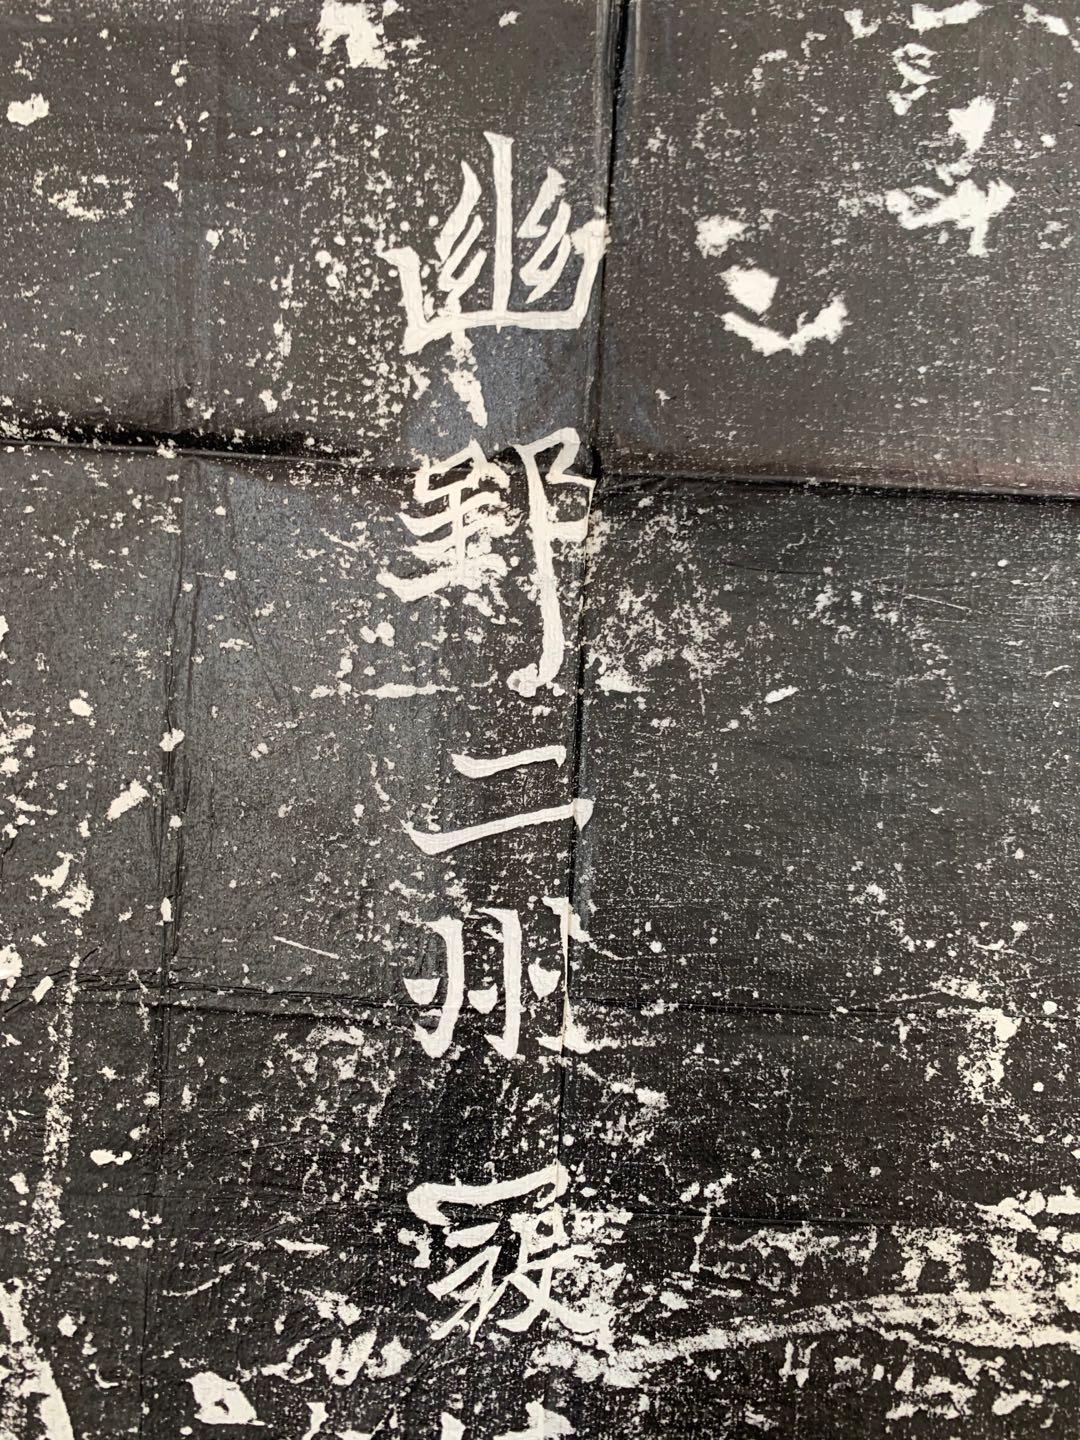 幽郢二州